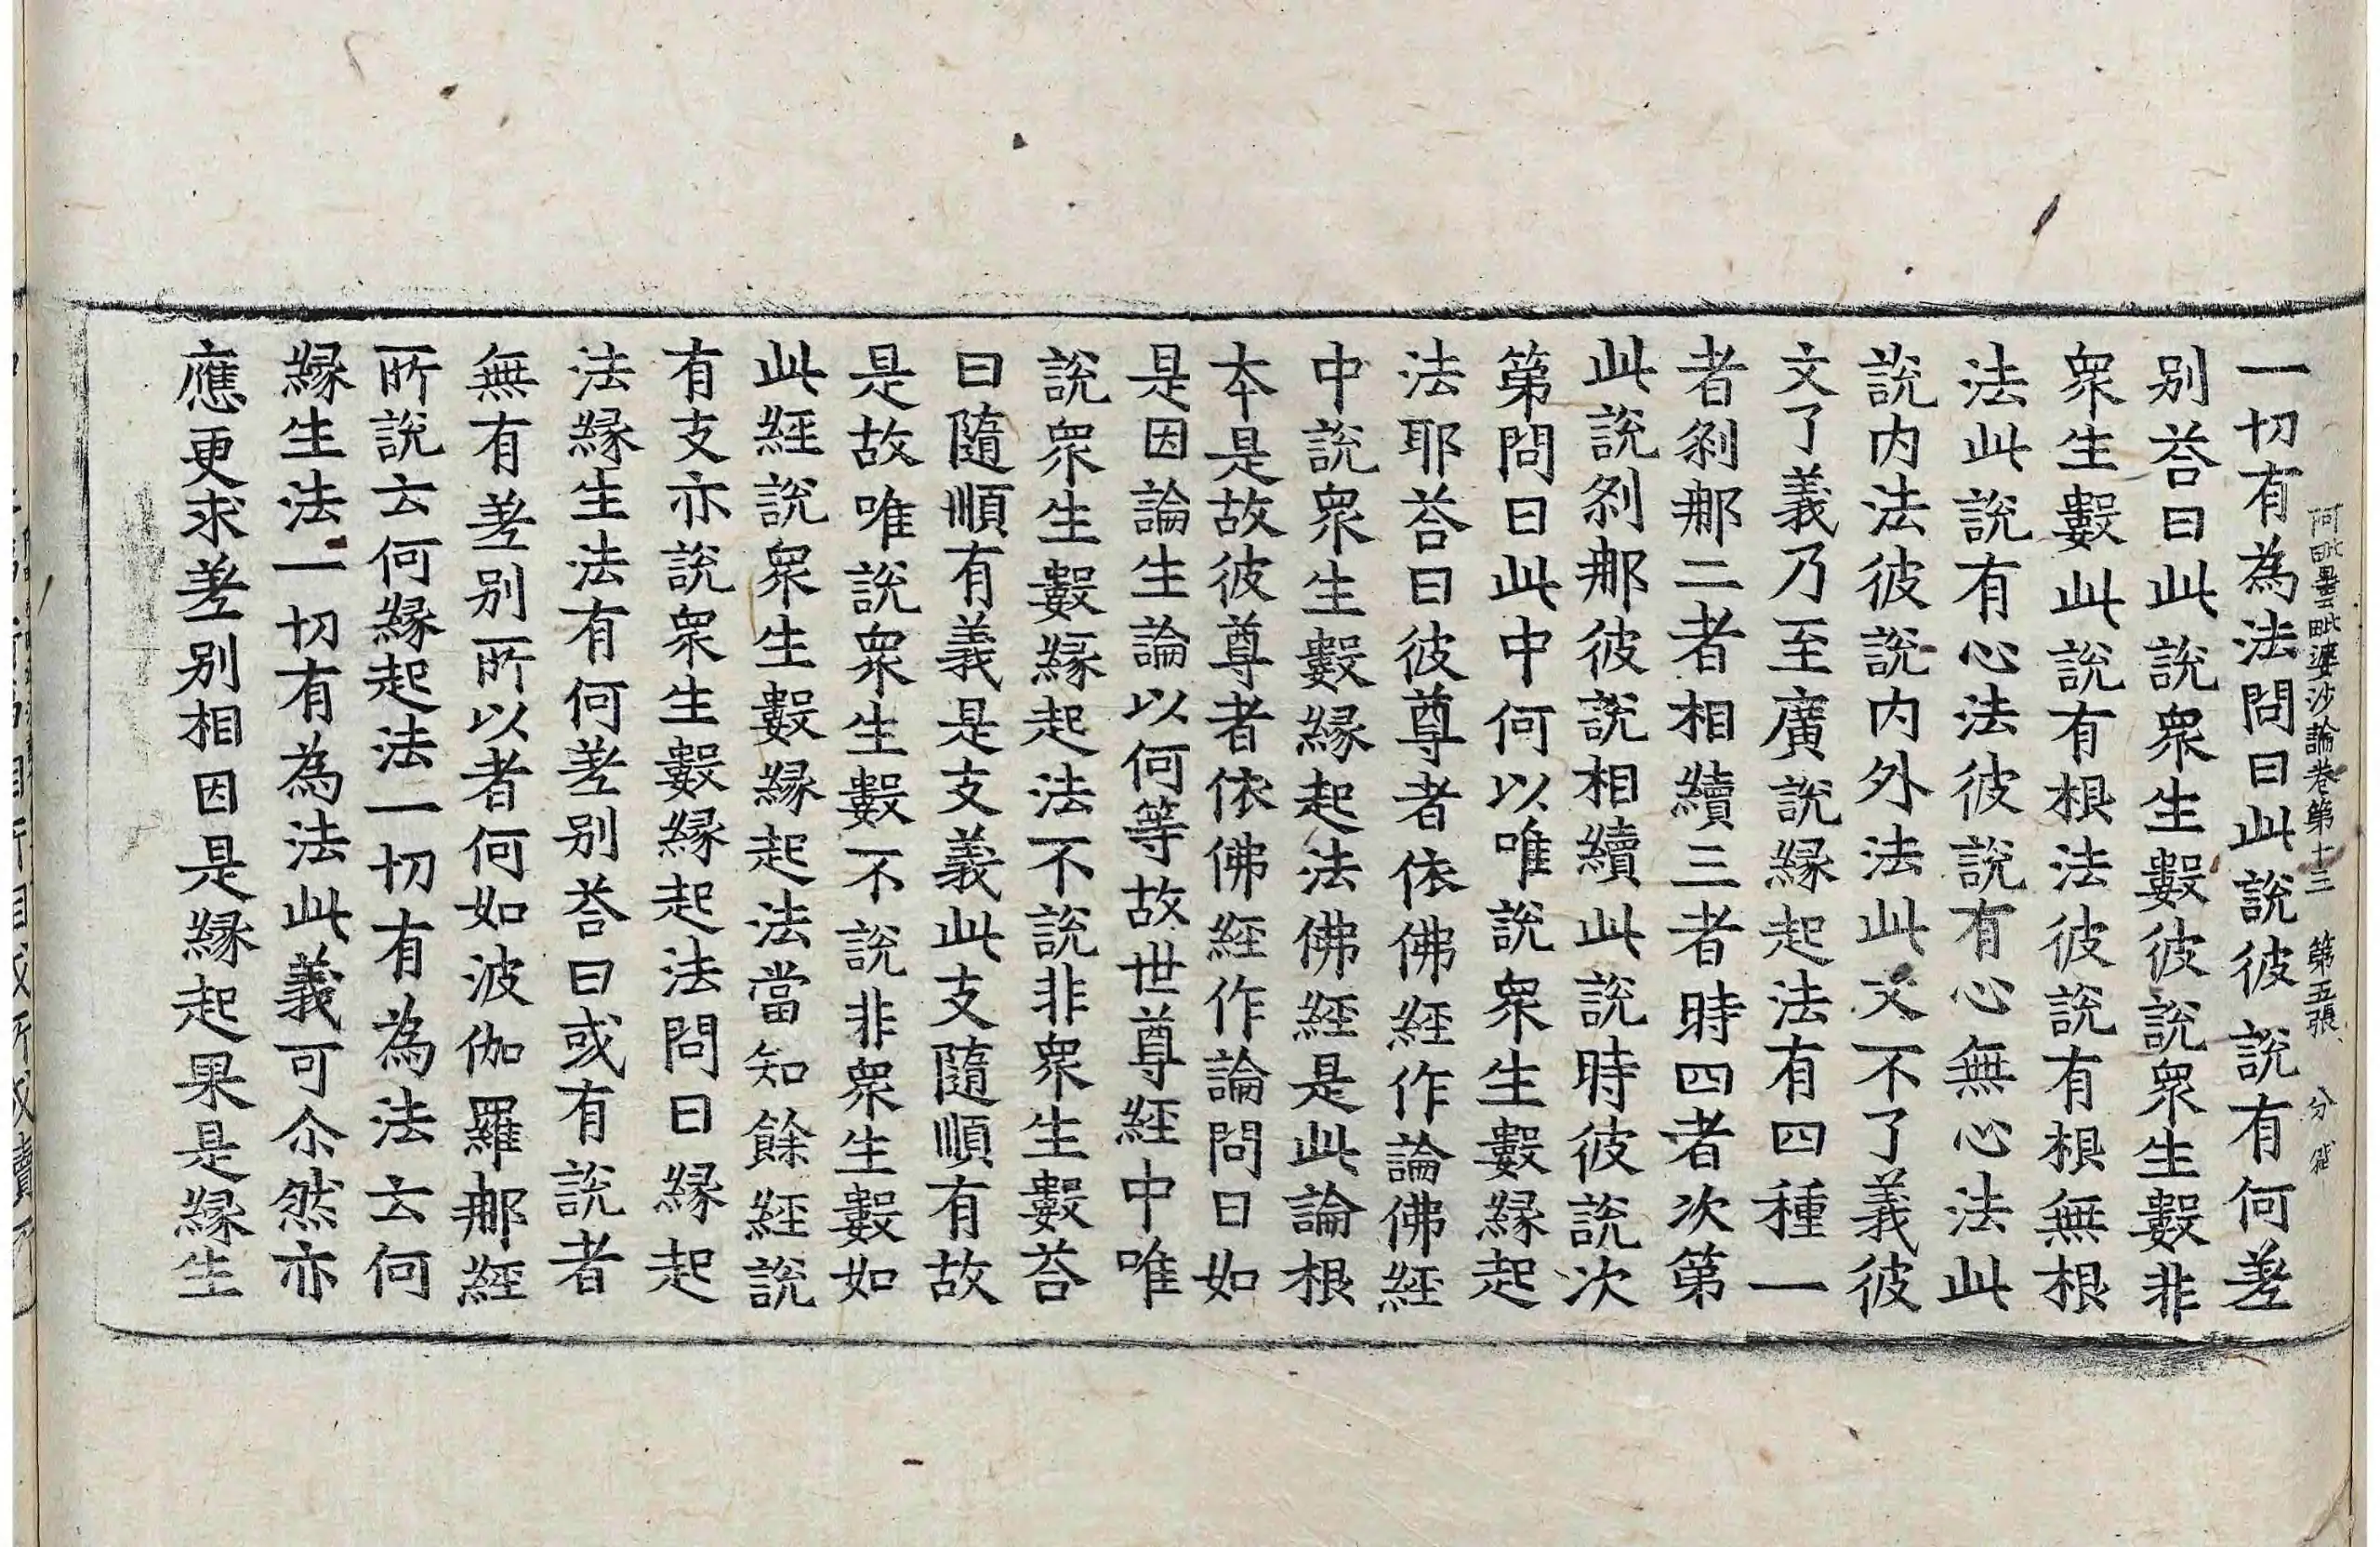 阿毗曇毗婆沙論卷第十三 第五張 分
一切有為法問曰此說彼說有何差
別荅曰此說衆生數彼說衆生數非
衆生數此說有根法彼說有根無根
法此說有心法彼說有心無心法此
說内法彼說内外法此文不了義彼
文了義乃至廣說緣起法有四種一
者剎那二者相續三者時四者次第
此說剎那彼說相續此說時彼說次
第問曰此中何以唯說衆生數緣起
法耶荅曰彼尊者依佛經作論佛經
中說衆生數緣起法佛經是此論根
本是故彼尊者依佛經作論問曰如
是因論生論以何等故世尊經中唯
說衆生數緣起法不說非衆生數荅
曰隨順有義是支義此支隨順有故
是故唯說衆生數不說非衆生數如
此經說衆生數緣起法當知餘經說
有支亦說衆生數緣起法問曰緣起
法緣生法有何差別荅曰或有說者
無有差別所以者何如波伽羅那經
所說云何緣起法一切有為法云何
緣生法一切有為法此義可尒然亦
應更求差別相因是緣起果是緣生